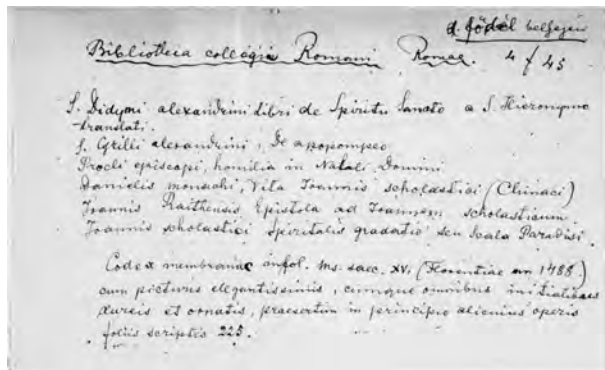 a. födél belsején
Bibliotheca collegia Romani Romae. 4 f 45
S. Didymi alexandrini libri de Spiritu Sancto a S. Hieronymo
translati.
S. Cyrilli alexandrini, De apopompeo
Procli episcopi, homilia in Natali Domini
Danielis monachi, Vita Joannis scholastici (Climaci)
Joannis Raithensis Epistola ad Joannem scholasticum
Joannis scholastici Spiritalis gradatio seu Scala Paradisi.
Codex membranac in fol. ms. saec. XV. (Florentiae an 1488.)
cum picturis elegantissimis, cumque omnibus initialibus
aureis et ornatis, praesertim in principio alicuius operis
foliis scriptis 225.